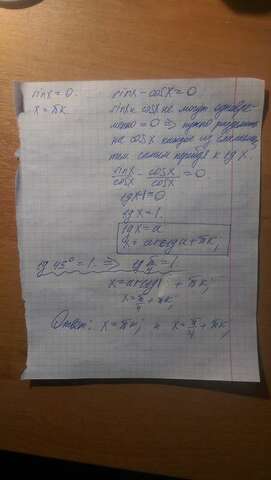 sinx = 0.
x = πk.
sinx - cosx = 0
sinx и cosx не могут одновре-
менно = 0 ⇒ нужно разделить
на cosx каждое из слагаемых,
тем самым прийдя к tg x.
sinx/cosx - cosx/cosx = 0
tgx-1=0.
tgx = 1.
tgx = a
x = arctg a + πk;
tg 45° = 1. ⇒ tg π/4 = 1.
x = arctg 1 + πk;
x = π/4 + πk;
Ответ: x = πn; и x = π/4 + πk;